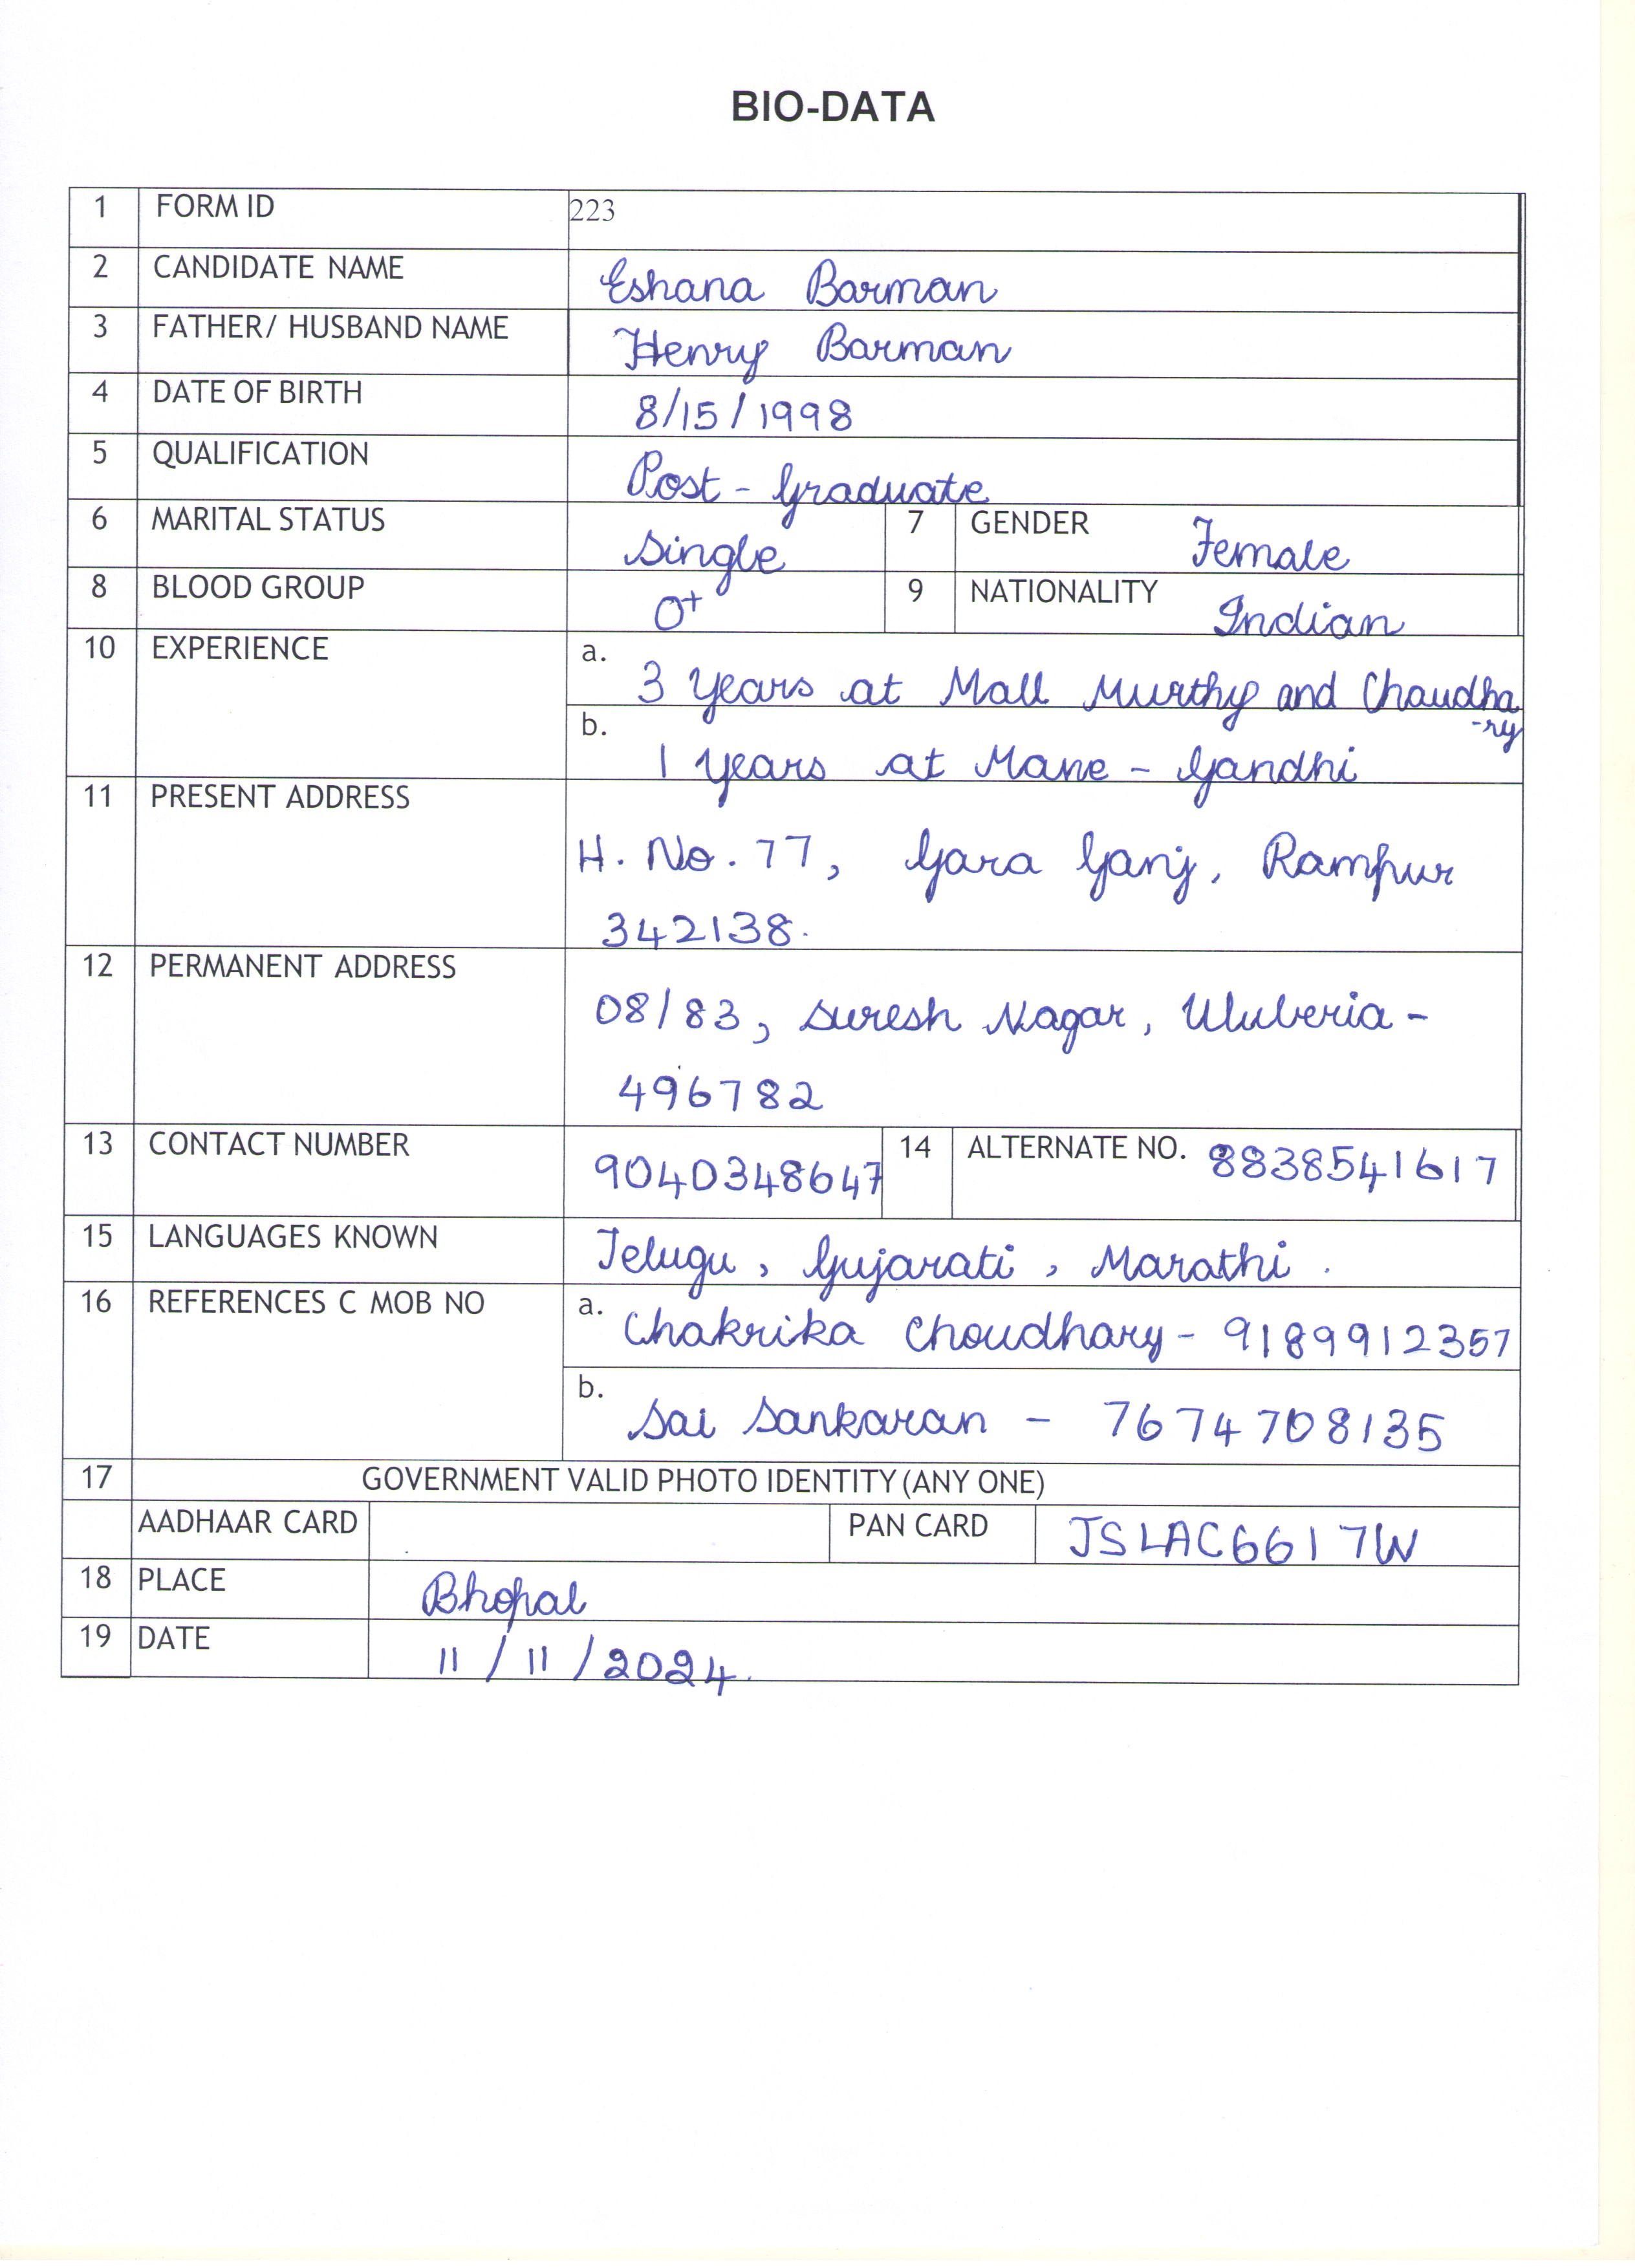 BIO-DATA
1 FORM ID 223
2 CANDIDATE NAME Eshana Barman
3 FATHER/ HUSBAND NAME Henry Barman
4 DATE OF BIRTH 8/15/1998
5 QUALIFICATION Post - Graduate
6 MARITAL STATUS Single 7 GENDER Female
8 BLOOD GROUP O+ 9 NATIONALITY Indian
10 EXPERIENCE a. 3 years at Mall Murthy and Chaudha
-ry
b. 1 years at Mane - Gandhi
11 PRESENT ADDRESS
H. No. 77, Gara Ganj, Rampur
342138.
12 PERMANENT ADDRESS
08/83, Suresh Nagar, Uluberia -
496782
13 CONTACT NUMBER 9040348647 14 ALTERNATE NO. 8838541617
15 LANGUAGES KNOWN Telugu, Gujarati, Marathi.
16 REFERENCES C MOB NO a. Chakrika Choudhary - 9189912357
b. Sai Sankaran - 7674708135
17 GOVERNMENT VALID PHOTO IDENTITY (ANY ONE)
AADHAAR CARD PAN CARD JSLAC6617W
18 PLACE Bhopal
19 DATE 11/11/2024.